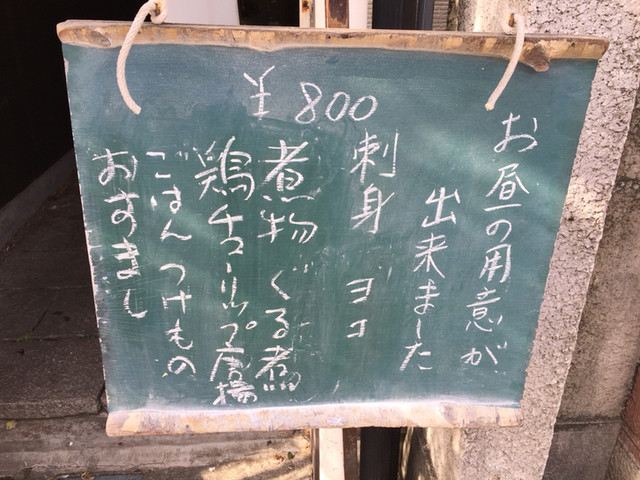 お昼の用意が
出来ました
¥800
刺身 ヨコ
煮物 ぐる煮
鶏チューリップ唐揚
ごはん つけもの
おすまし